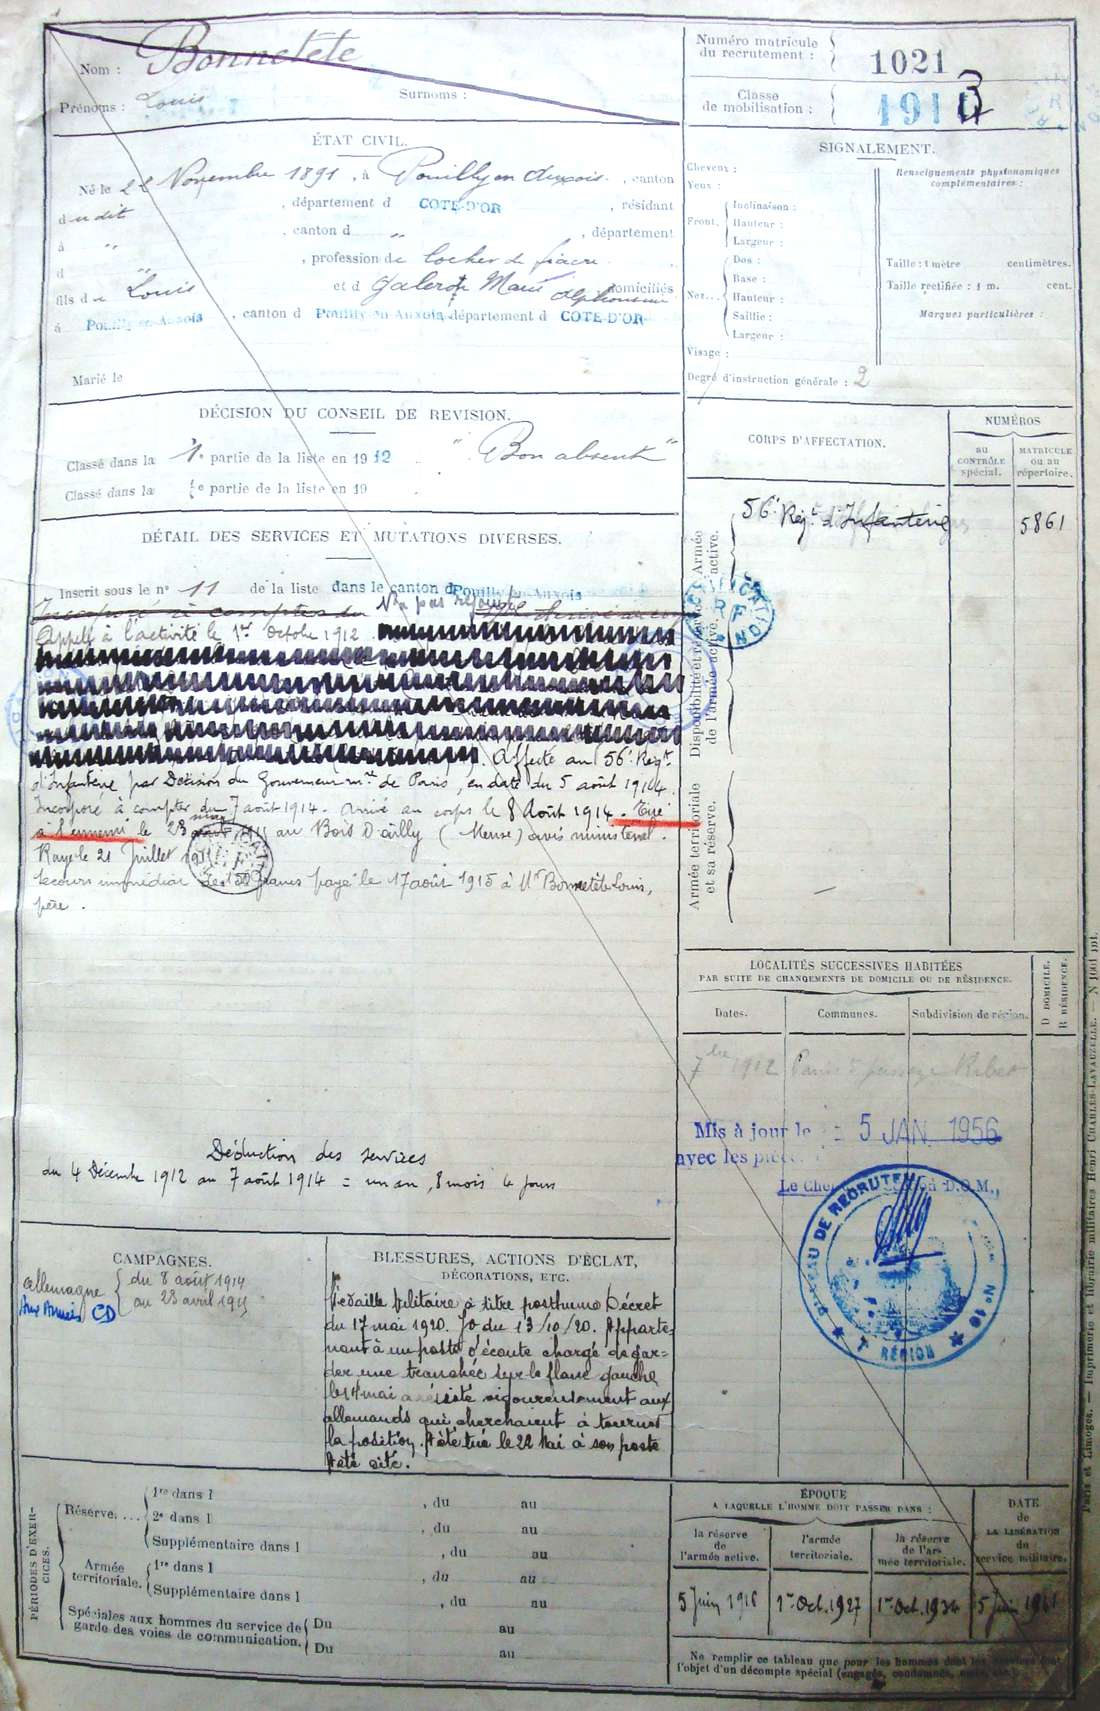 Nom : Bonnetête
Prénoms : Louis
Surnoms :
Numéro matricule du recrutement : 1021
Classe de mobilisation : 191
ÉTAT CIVIL.
Né le 22 Novembre 1891, à Pouilly en Auxois, canton
dudit, département d COTE-D'OR, résidant
à " , canton d " , département
d " , profession de Cocher de fiacre
fils de Louis et d Galerot Marie Alphonsine domiciliés
à Pouilly-en-Auxois, canton d Pouilly-en-Auxois département d COTE-D'OR
Marié le
SIGNALEMENT.
Cheveux :
Yeux :
Front. Inclinaison :
Hauteur :
Largeur :
Nez... Dos :
Base :
Hauteur :
Saillie :
Largeur :
Visage :
Degré d'instruction générale : 2
Renseignements physionomiques
complémentaires :
Taille : 1 mètre centimètres.
Taille rectifiée : 1 m. cent.
Marques particulières :
DÉCISION DU CONSEIL DE REVISION.
Classé dans la 1e partie de la liste en 1912 " Bon absent "
Classé dans la e partie de la liste en 19
CORPS D'AFFECTATION.
NUMÉROS
au CONTRÔLE spécial.
MATRICULE ou au répertoire.
Armée active.
Disponibilité et réserve de l'armée active.
Armée territoriale et sa réserve.
56e Regt d'Infanterie 5861
DÉTAIL DES SERVICES ET MUTATIONS DIVERSES.
Inscrit sous le n° 11 de la liste dans le canton de Pouilly-en-Auxois
Incorporé à compter du N'a pas rejoint
Appelé à l'activité le 1er Octobre 1912
. Affecté au 56e Regt
d'Infanterie par Décision du Gouverneur mre de Paris, en date du 5 août 1914.
Incorporé à compter du 7 août 1914. Arrivé au corps le 8 Août 1914. Tué
à l'ennemi le 23 mai au Bois D'ailly (Meuse) avis ministériel.
Rayé le 21 Juillet
Secours immédiat de 150 francs payé le 17 août 1915 à Mr Bonnetête Louis,
père.
Déduction des services
du 4 Décembre 1912 au 7 août 1914 = un an, 8 mois 4 jours
LOCALITÉS SUCCESSIVES HABITÉES
PAR SUITE DE CHANGEMENTS DE DOMICILE OU DE RÉSIDENCE.
D DOMICILE.
R RÉSIDENCE.
Dates. Communes. Subdivision de région.
7bre 1912 Paris 5 passage Ribet
Mis à jour le 5 JAN. 1956
avec les
Le Chef D.O.M.,
BUREAU DE RECRUTEMENT
N° 16
7e RÉGION
CAMPAGNES.
Allemagne du 8 août 1914
au 23 avril 1915
Aux Armées CD
BLESSURES, ACTIONS D'ÉCLAT,
DÉCORATIONS, ETC.
Médaille Militaire à titre posthume Décret
du 17 mai 1920. JO du 13/10/20. Apparte-
nant à un poste d'écoute chargé de gar-
der une tranchée sur le flanc gauche
a résisté vigoureusement aux
allemands qui cherchaient à tourner
la position. A été tué le 22 Mai à son poste
A été cité.
PÉRIODES D'EXERCICES.
Réserve.... 1re dans l , du au
2e dans l , du au
Supplémentaire dans l , du au
Armée territoriale. 1re dans l , du au
Supplémentaire dans l , du au
Spéciales aux hommes du service de garde des voies de communication. Du au
Du au
ÉPOQUE
A LAQUELLE L'HOMME DOIT PASSER DANS :
la réserve de l'armée active.
l'armée territoriale.
la réserve de l'armée territoriale.
DATE de LA LIBÉRATION du service militaire.
5 Juin 1916 1er Oct. 1927 1er Oct. 1934 5 Juin
Ne remplir ce tableau que pour les hommes dont les services font
l'objet d'un décompte spécial (engagés, condamnés, omis, etc.)
Paris et Limoges. — Imprimerie et librairie militaires Henri CHARLES-LAVAUZELLE.